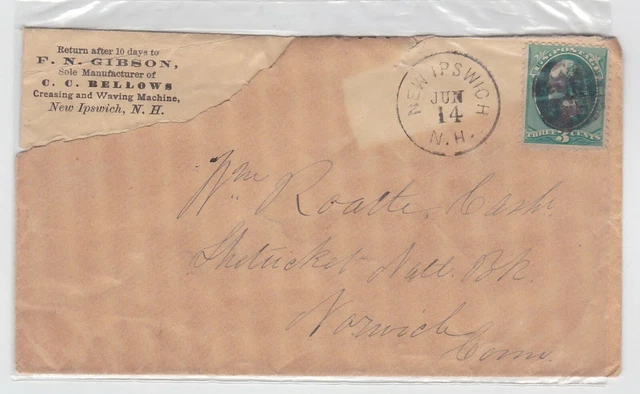 Return after 10 days to
F. N. GIBSON,
Sole Manufacturer of
C. C. BELLOWS
Creasing and Waving Machine,
New Ipswich, N. H.
NEW IPSWICH
JUN
14
N.H.
U.S. POSTAGE
THREE 3 CENTS
Wm Roath, Cash.
Shetucket Natl. Bk.
Norwich
Conn.